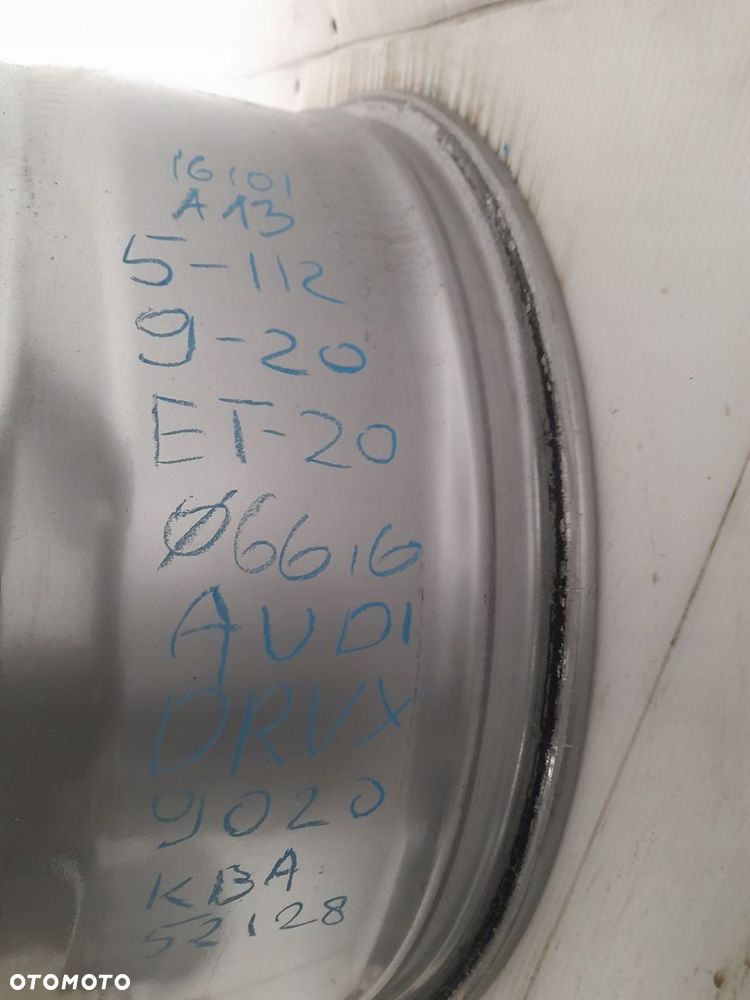 16101
A13
5-112
9-20
ET-20
Ø66,6
AUDI
DRVX
9020
KBA
52128
OTOMOTO